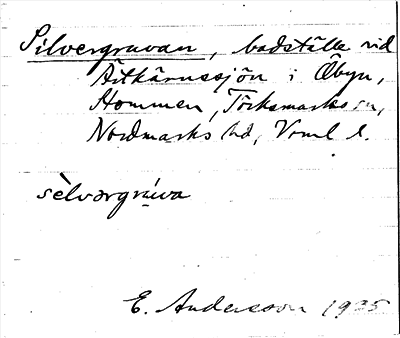 Silvergruvan, badställe vid
Ältkärnssjön i Öbyn,
Hommen, Töcksmarks sn,
Nordmarks hd, Vrml l.
sèlvərgrúva
E. Andersson 1935